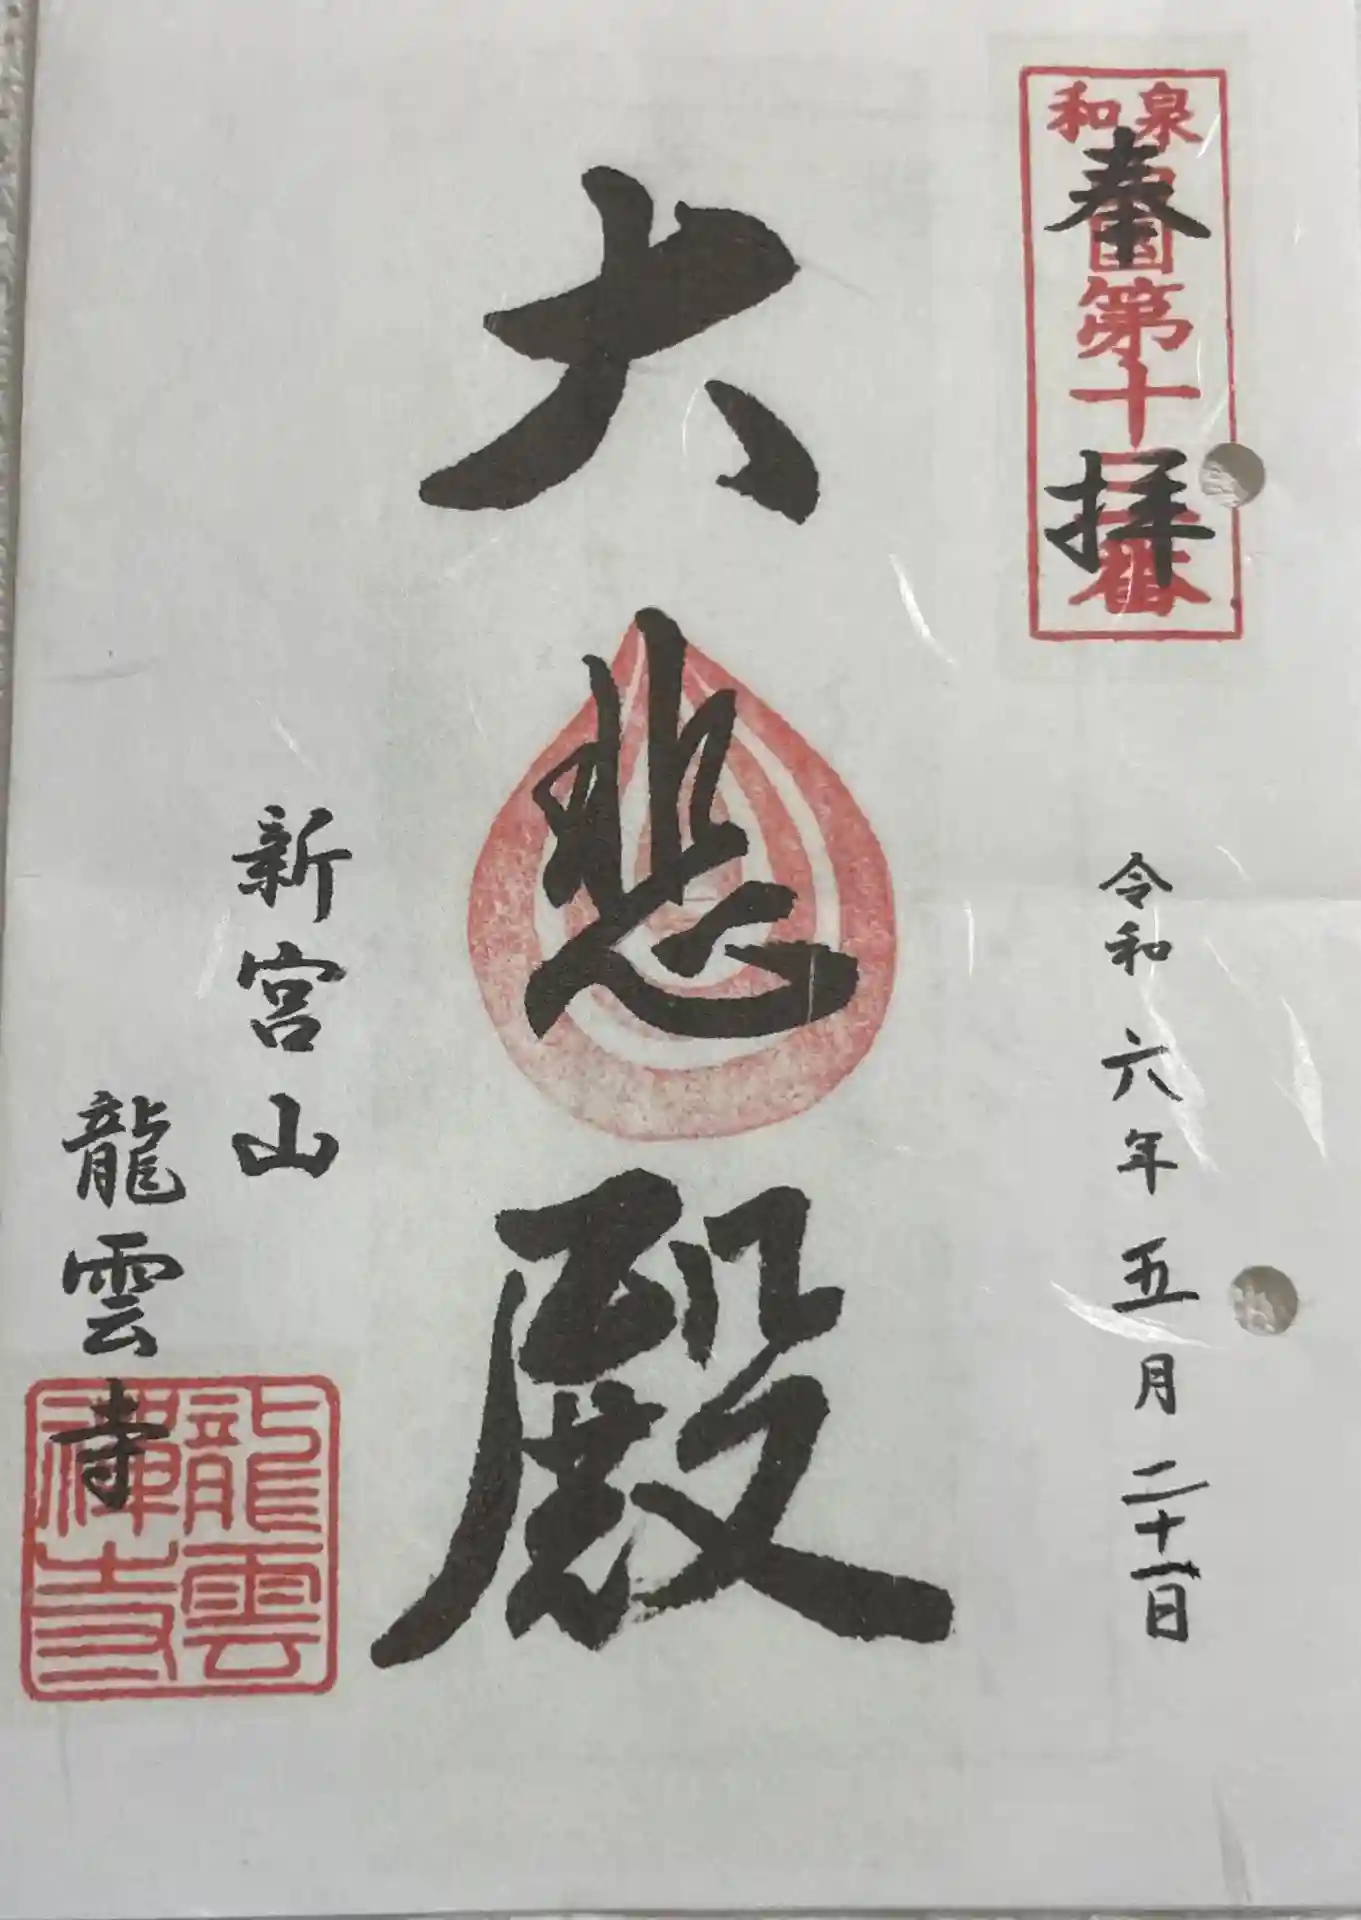 奉拝
和泉
西国第十三番
令和六年五月二十一日
大悲殿
新宮山
龍雲寺
龍雲
禅寺